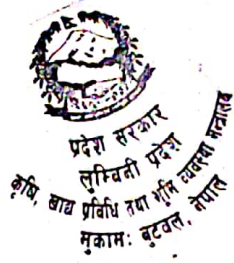 प्रदेश सरकार
लुम्बिनी प्रदेश
कृषि, खाद्य प्रविधि तथा भूमि व्यवस्था मन्त्रालय
मुकामः बुटवल, नेपाल